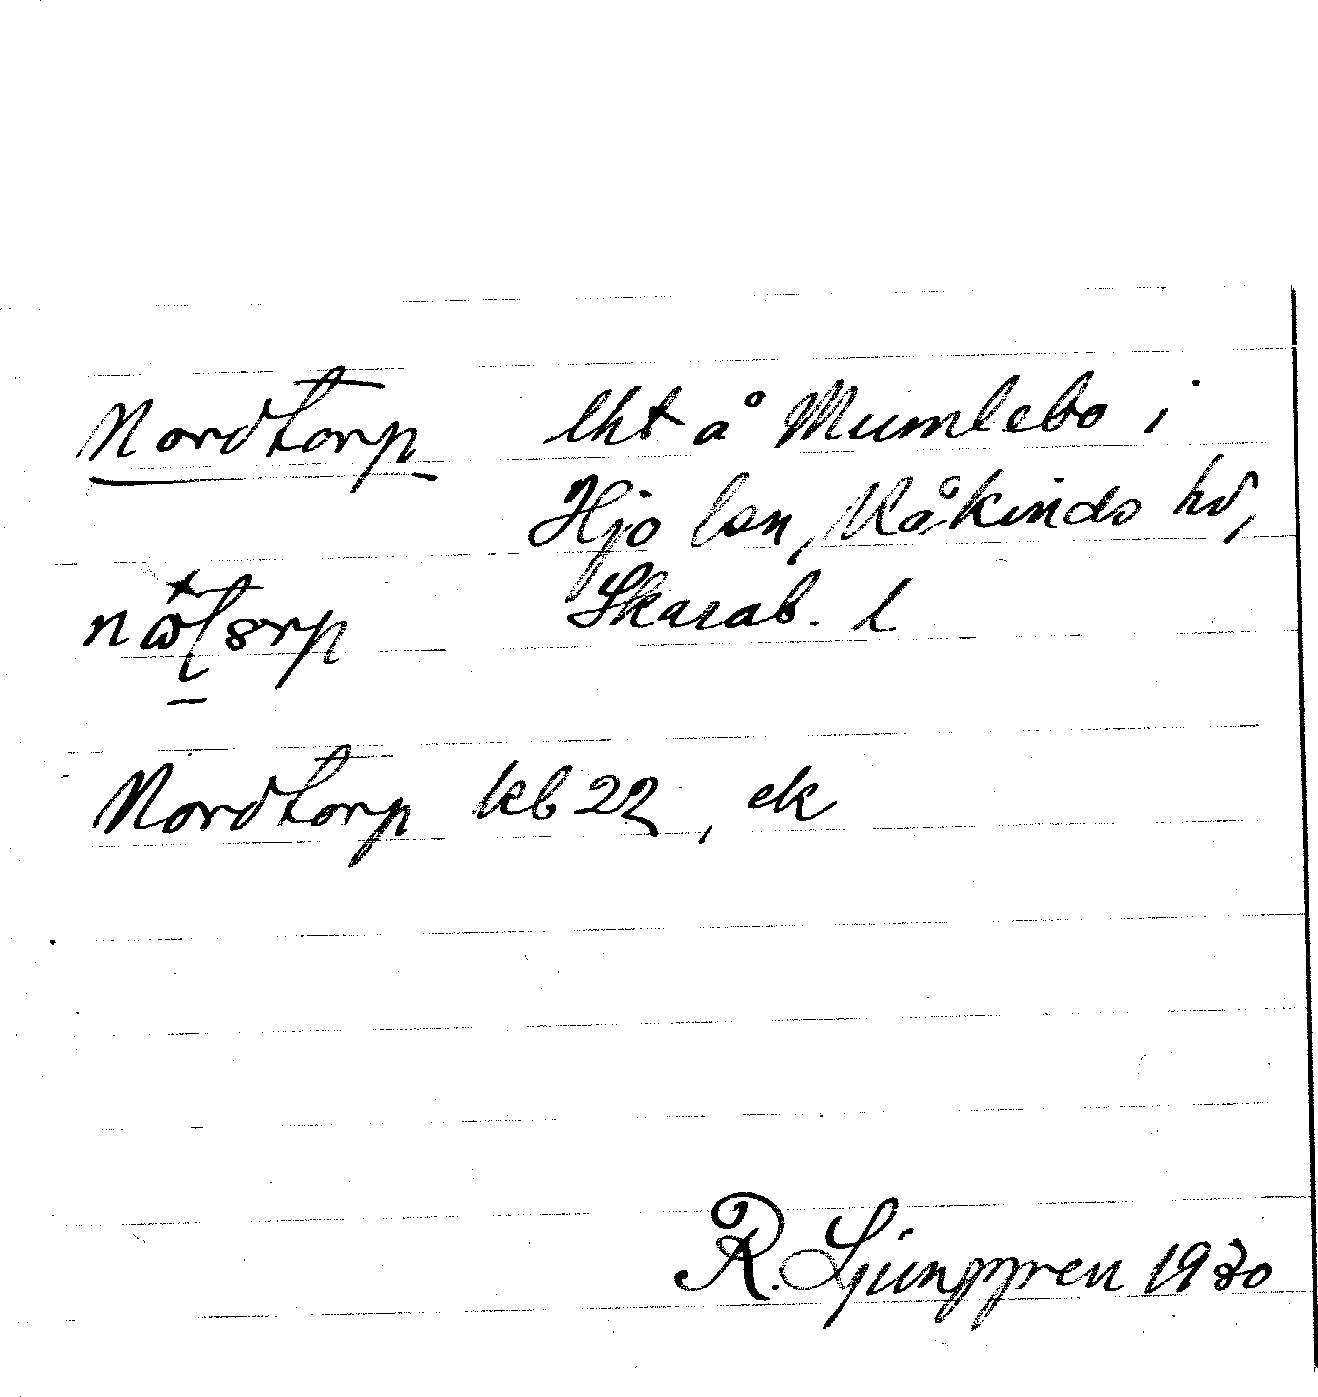 Nordtorp lht å Mumlebo i
Hjo lsn, Kåkinds hd,
Skarab. l
Nordtorp kb 22, ek
R. Ljunggren 1930